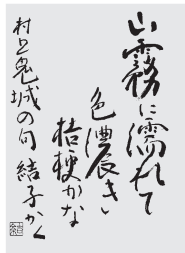 山霧に濡れて
色濃き
桔梗かな
村上鬼城の句 結子かく